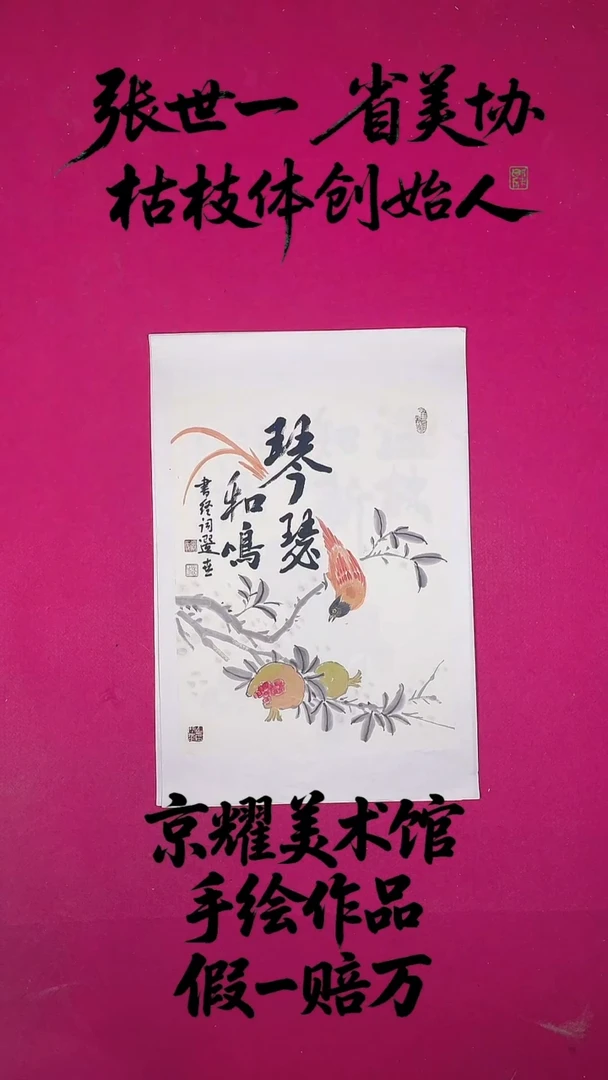 张世一 省美协
枯枝体创始人
琴瑟
和鸣
书经词选
京耀美术馆
手绘作品
假一赔万